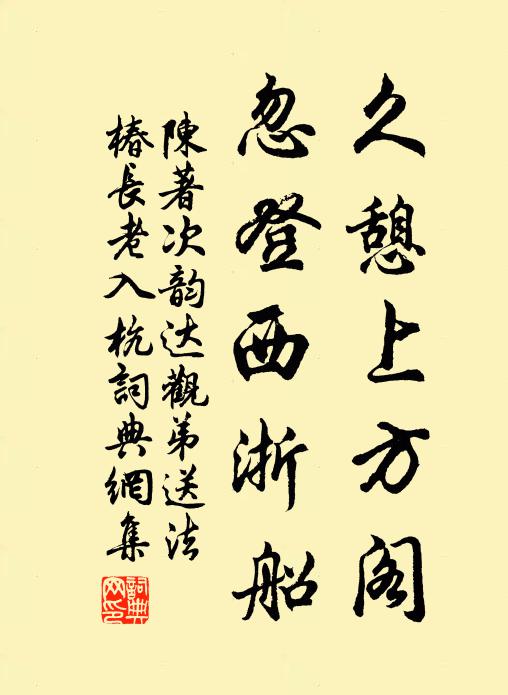 久憩上方阁
忽登西浙船
陳著次韵达觀弟送法
椿長老入杭詞典網集
詞典網印